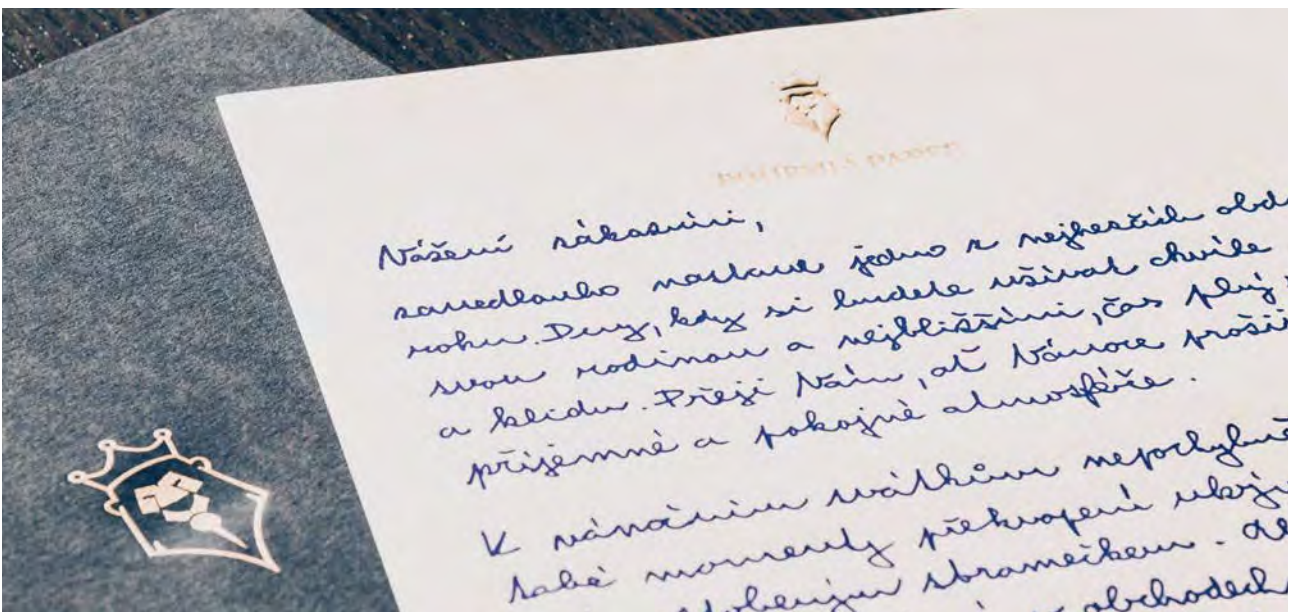 BOHEMIA PAPER
Vážení zákazníci,
zanedlouho nastane jedno z nejhezčích obd
roku. Dny, kdy si budete užívat chvíle
svou rodinou a nejbližšími, čas plný
a klidu. Přeji Vám, ať Vánoce prožij
příjemné a pokojné atmosféře.
K vánočním svátkům nepochybně
také momenty překvapení ukryj
zdobeným stromečkem.
obchodech